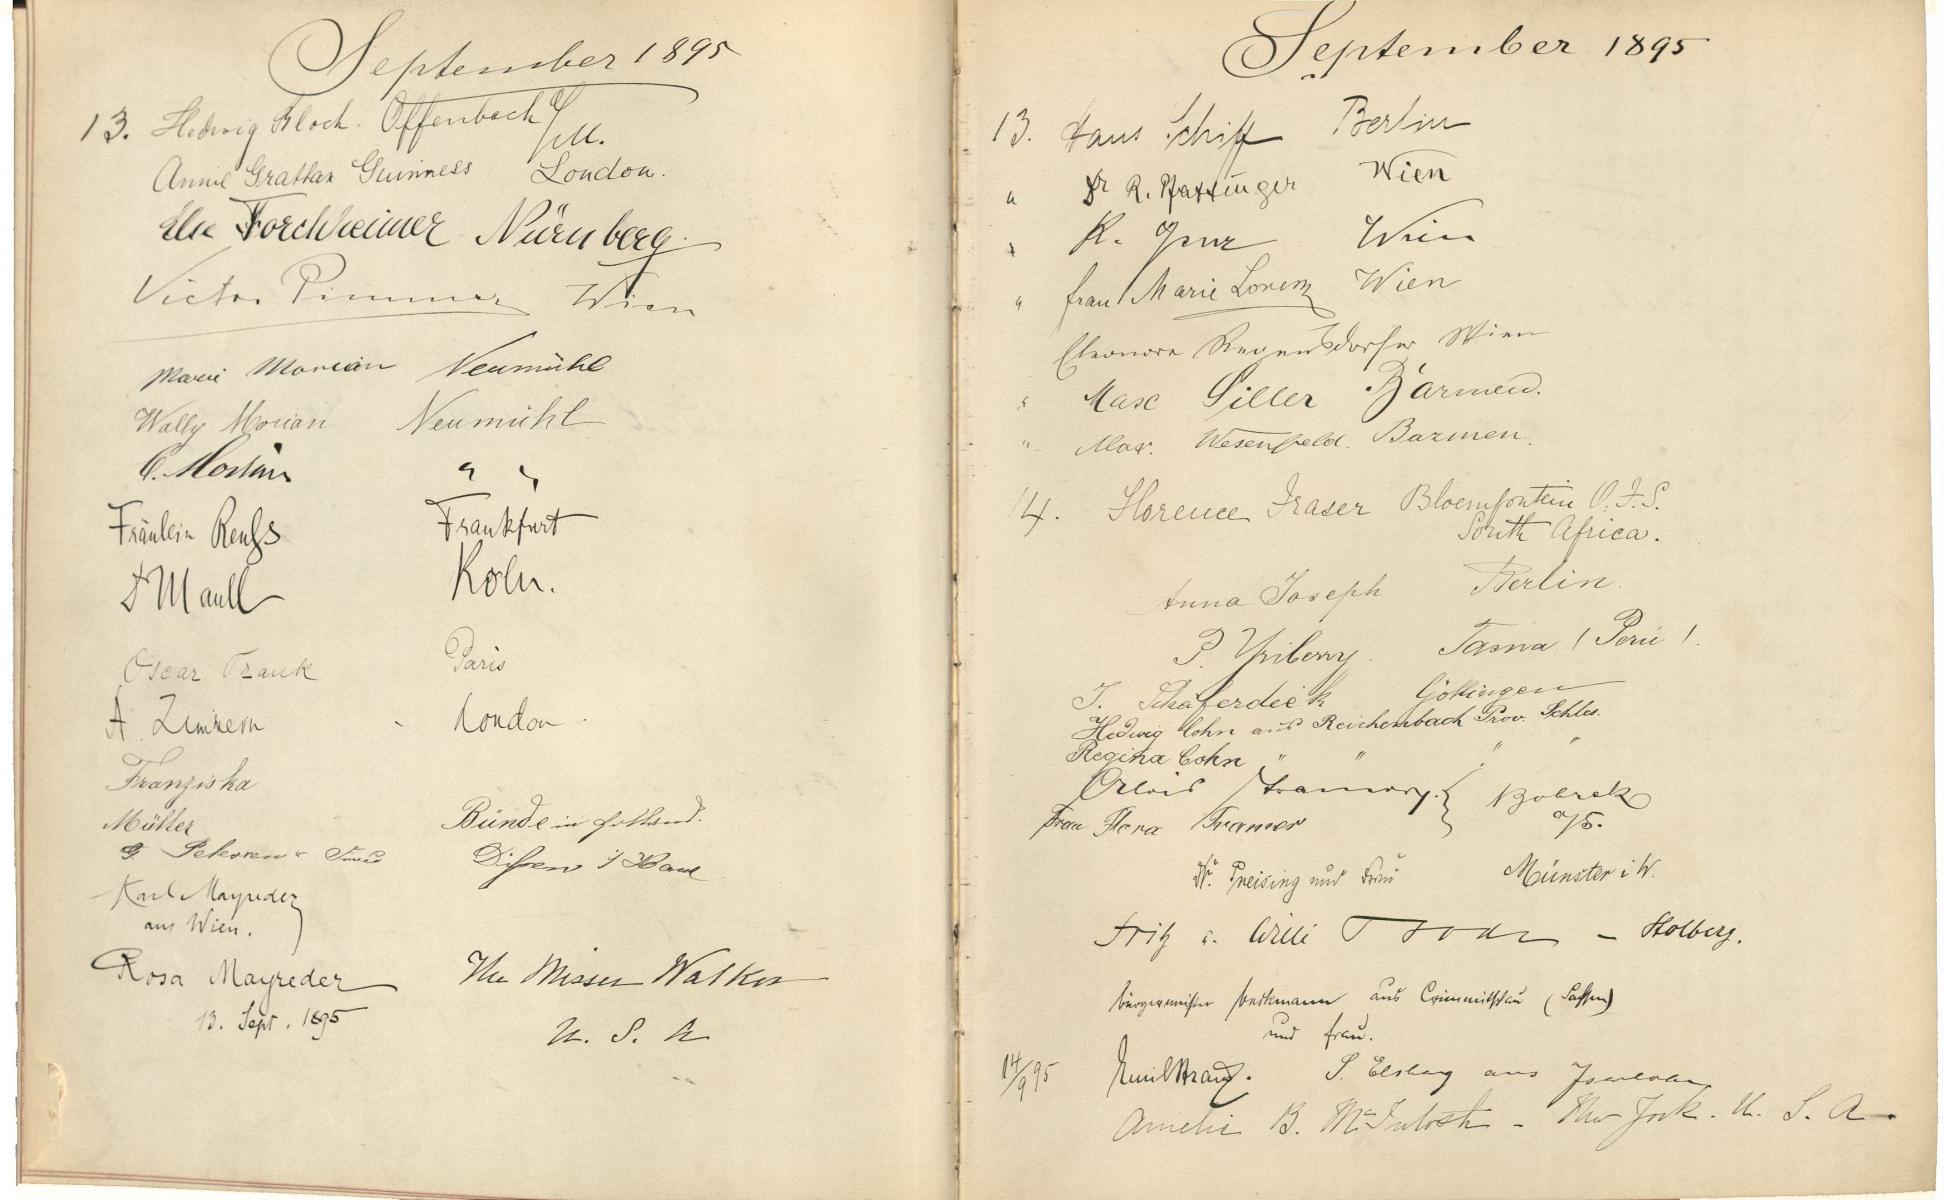 September 1895
13. Hedwig Bloch. Offenbach a/M.
Annie Grattan Guinness London.
Else Forchheimer Nürnberg.
Victor Pimmer Wien
Marie Morian Neumühl
Wally Morian Neumühl
C. Morian " "
Fräulein Reuss Frankfurt
Maull Köln.
Oscar Frank Paris
A. Zimmern London
Franziska
Müller Bünde in
Dissen
Karl Mayreder
aus Wien.
Rosa Mayreder The Misses Walker
13. Sept. 1895
U. S. A
September 1895
13. Hans Schiff Berlin
" Dr R. Wien
" K. Wien
" Frau Marie Lorenz Wien
Eleonore Regensdorfer Wien
" Max Siller Barmen.
" Max. Wesenfeld. Barmen.
14. Florence Fraser Bloemfontein O. F. S.
South Africa.
Anna Joseph Berlin.
P. Yriberry. Tacna (Perú).
J. Schäferdiek Göttingen
Hedwig Cohn aus Reichenbach Prov. Schles.
Regina Cohn " " " "
Bobrek
Frau Flora Kramer o/S.
Dr. Preising und Frau Münster i W.
Fritz u. Willi – Stolberg.
Bürgermeister Beckmann aus Crimmitschau (Sachsen)
und Frau.
14/9 95 Emil S. Elsberg aus Iserlohn
Amelie B. McIntosh – New York. U. S. A.